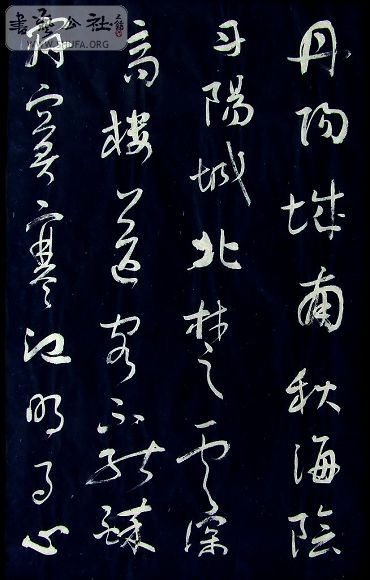 丹陽城南秋海陰
丹陽城北楚雲深
高樓送客不能醉
寂寂寒江明月心